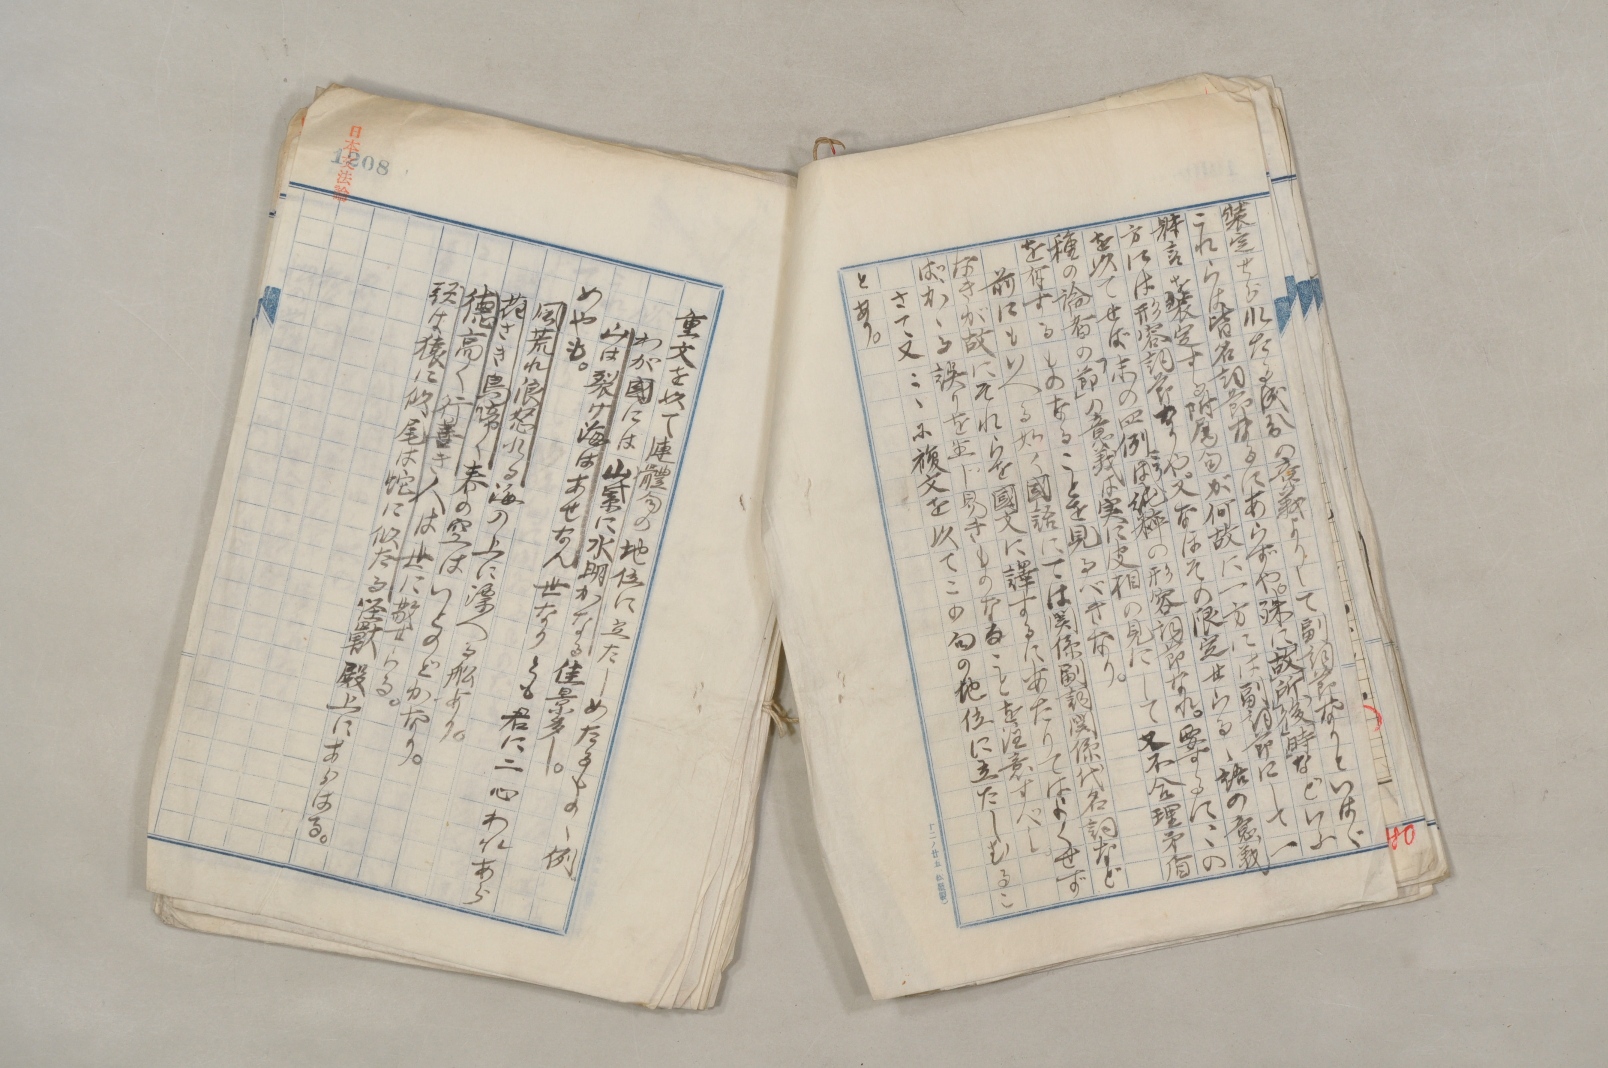 装定せられたる成分の意義よりして副詞節なりといはゞ
これらは皆名詞節なるにあらずや。殊に「故」「所」「後」「時」などいふ
体言を装定する附属句が何故に一方には副詞節にして一
方には形容詞節なりや。又なほその限定せらるゝ語の意義
を以てせば末の四例は純粋の形容詞節なれ。要するにこの
種の論者の「節」の意義は実に皮相の見にして又不合理矛盾
を有するものなることを見るべきなり。
前にもいへる如く国語にては関係副詞関係代名詞など
なきが故にそれらを國文に譯するにあたりてはよくせず
ばかゝる誤りを生じ易きものなることを注意すべし
さて又こゝに複文を以てこの句の地位に立たしむるこ
とあり。
日本文法論
1208
重文を以て連體句の地位に立たしめたるものゝ例
わが國には山紫に水明かなる佳景多し。
山は裂け海はあせなん世なりとも君に二心われあら
めやも。
風荒れ浪怒れる海の上に漂へる船あり。
花さき鳥啼く春の空はいとのどかなり。
徳高く行善き人は世に敬せらる。
頭は猿に似尾は蛇に似たる怪獣殿上にあらはる。
180